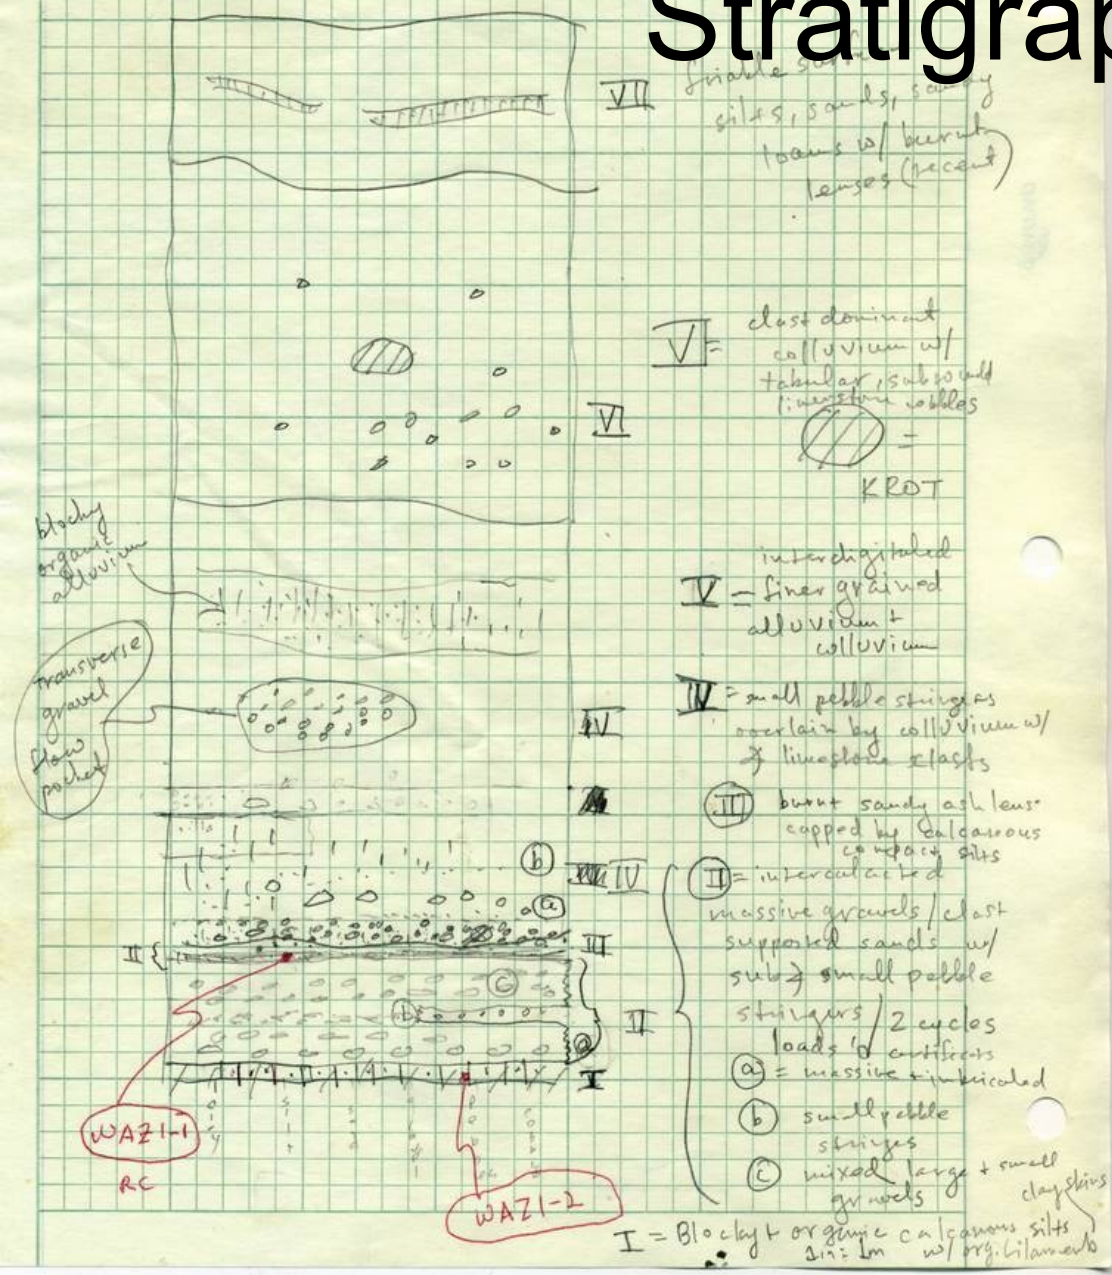 Stratigrap
VII
friable
silts, sands, sandy
loams w/ burnt
lenses (recent)
VI =
clast dominant
colluvium w/
tabular, subround
limestone cobbles
VI
=
KROT
blocky
organic
alluvium
interdigitated
V = finer grained
alluvium +
colluvium
transverse
gravel
flow
pocket
IV = small pebble stringers
overlain by colluvium w/
limestone clasts
IV
III burnt sandy ash lens
capped by calcareous
compact silts
b
IV
II = intercalated
massive gravels / clast
supported sands w/
small pebble
stringers / 2 cycles
loads o' artifacts
a
II {
III
c
b
II
a
I
a = massive + imbricated
b small pebble
stringers
c mixed large + small
gravels
WAZ1-1
RC
WAZ1-2
clay skins
I = Blocky + organic calcareous silts
w/ org. filaments
1in = 1m